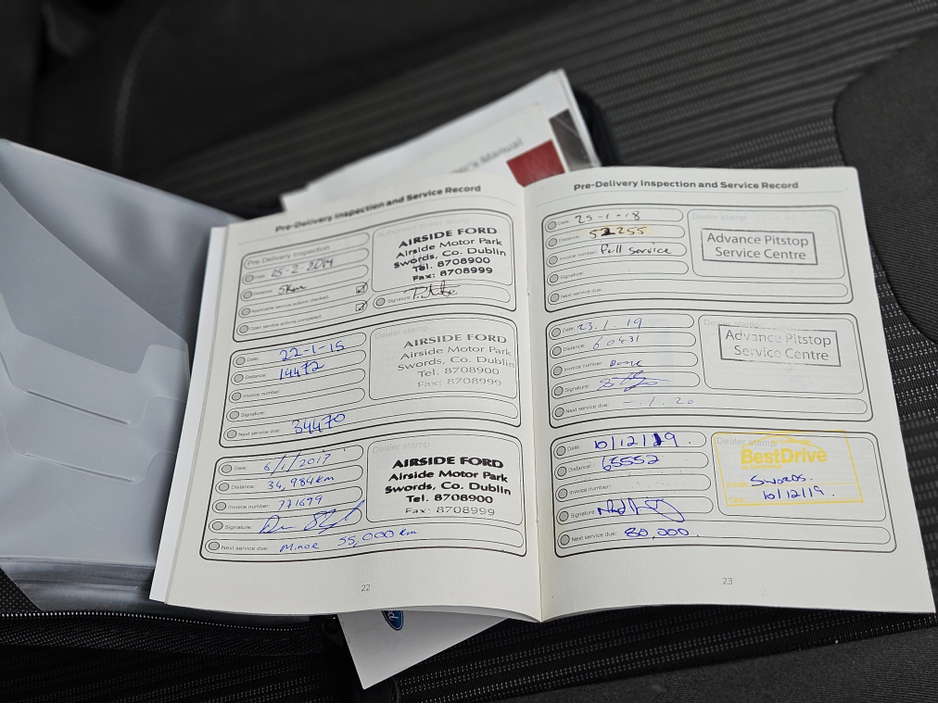 Owner's Manual
Pre-Delivery Inspection and Service Record
Pre Delivery Inspection
Date: 25-2-2014
Distance: 5km
Applicable service actions checked ✓
Open service actions completed ✓
AIRSIDE FORD
Airside Motor Park
Swords, Co. Dublin
Tel. 8708900
Fax: 8708999
Signature:
Date: 22-1-15
Distance: 14472
Invoice number:
Signature:
Next service due: 34470
Dealer stamp
AIRSIDE FORD
Airside Motor Park
Swords, Co. Dublin
Tel. 8708900
Fax: 8708999
Date: 6/1/2017
Distance: 34,984km
Invoice number: 771679
Signature:
Next service due: Minor 55,000 km
Dealer stamp
AIRSIDE FORD
Airside Motor Park
Swords, Co. Dublin
Tel. 8708900
Fax: 8708999
22
Pre-Delivery Inspection and Service Record
Date: 25-1-18
Distance: 52255
Invoice number: Full Service
Signature:
Next service due:
Dealer stamp
Advance Pitstop
Service Centre
Date: 23.1.19
Distance: 60431
Invoice number:
Signature:
Next service due: -.1.20
Dealer stamp
Advance Pitstop
Service Centre
Date: 10/12/19.
Distance: 65552
Invoice number:
Signature:
Next service due: 80,000.
Dealer stamp
BestDrive
Swords.
10/12/19.
23